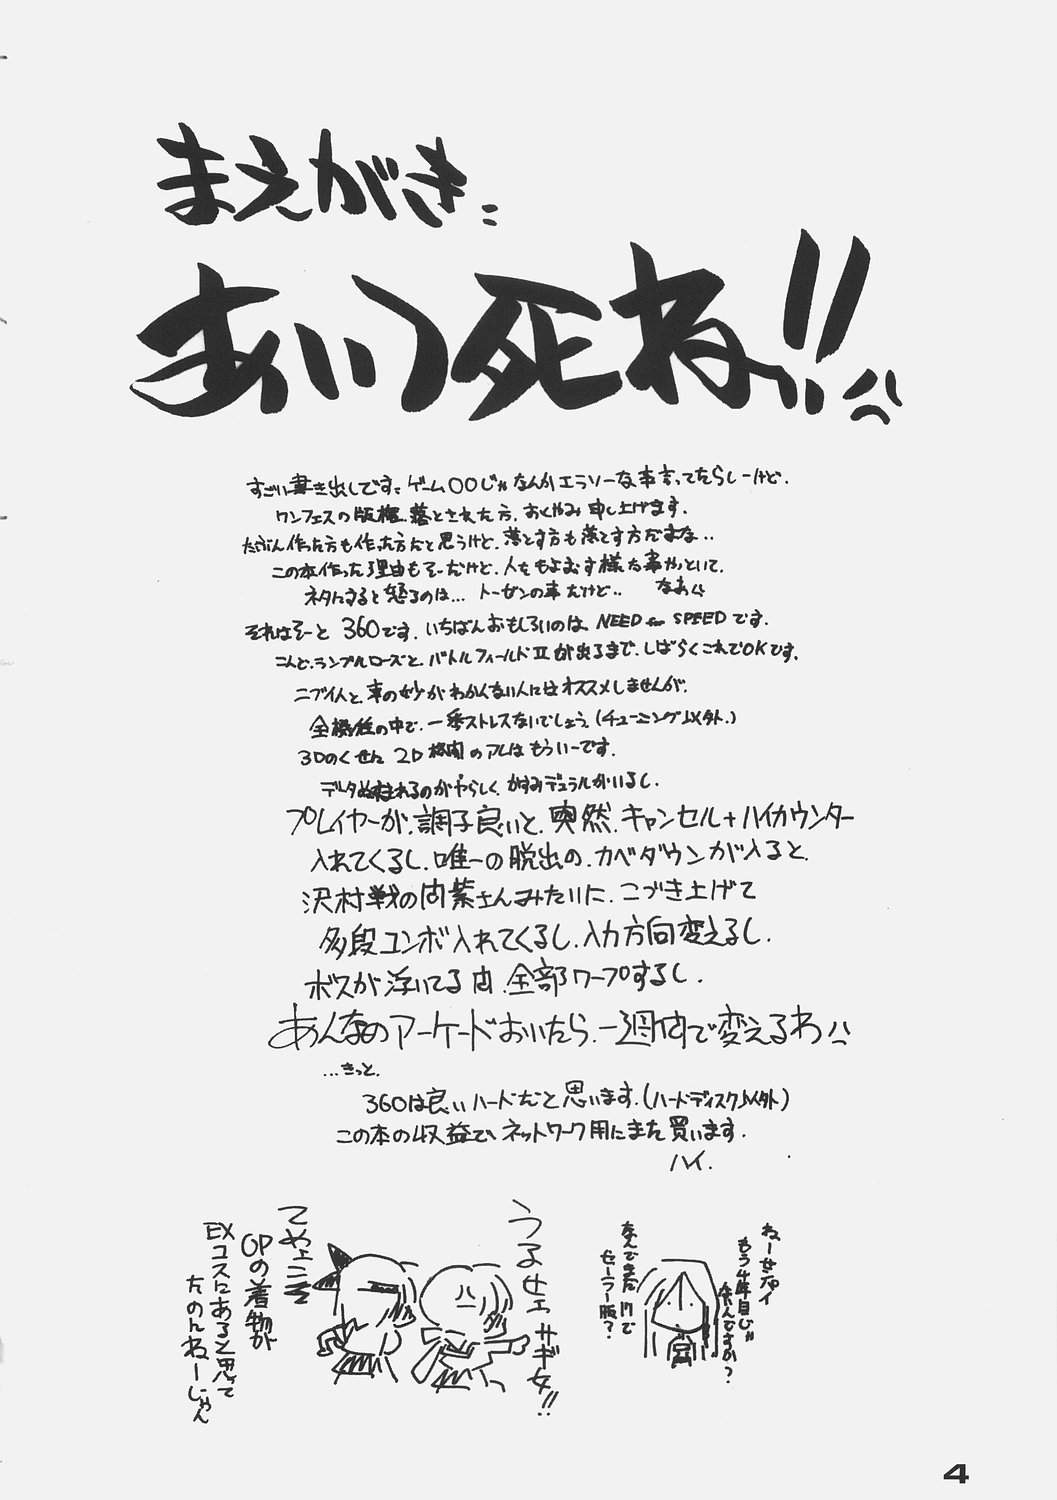 まえがき:
あいつ死ね!!
すごい書き出しです。ゲーム○○じゃなんかエラソーな事言ってたらしーけど.
ワンフェスの版権.落とされた方.おくやみ申し上げます.
たぶん作った方も作った方だと思うけど.落とす方も落とす方だよな..
この本作った理由もそーだけど.人をもよおす様な事やっといて.
ネタにすると怒るのは... トーゼンの事だけど.. なあ
それはそーと 360です. いちばんおもしろいのは、NEED for SPEEDです.
こんど.ランブルローズと.バトルフィールドⅡが出るまで.しばらくこれでOKです.
ニブイ人と.車の妙がわかんない人にはオススメしませんが.
全機種の中で.一番ストレスないでしょう.(チューニング以外.)
3Dのくせに 2D格闘のアレはもういーです.
データ
のがやらしく.かすみデュラルがいるし.
プレイヤーが.調子良いと.突然.キャンセル+ハイカウンター
入れてくるし.唯一の脱出の.カベダウンが入ると.
沢村戦の
さんみたいに.こづき上げて
多段コンボ入れてくるし.入力方向変えるし.
ボスが浮いてる間.全部ワープするし.
あんなのアーケードおいたら.一週間で変えるわ
...きっと.
360は良いハードだと思います.(ハードディスク以外)
この本の収益で、ネットワーク用にまた買います.
ハイ.
うるせェサギ女!!
てめェこそ
OPの着物が
EXコスにあると思って
たのんねーじゃん
ねーせんせイ
もう4年目じゃ
ないですか?
なんでまだ17で
セーラー服?
4